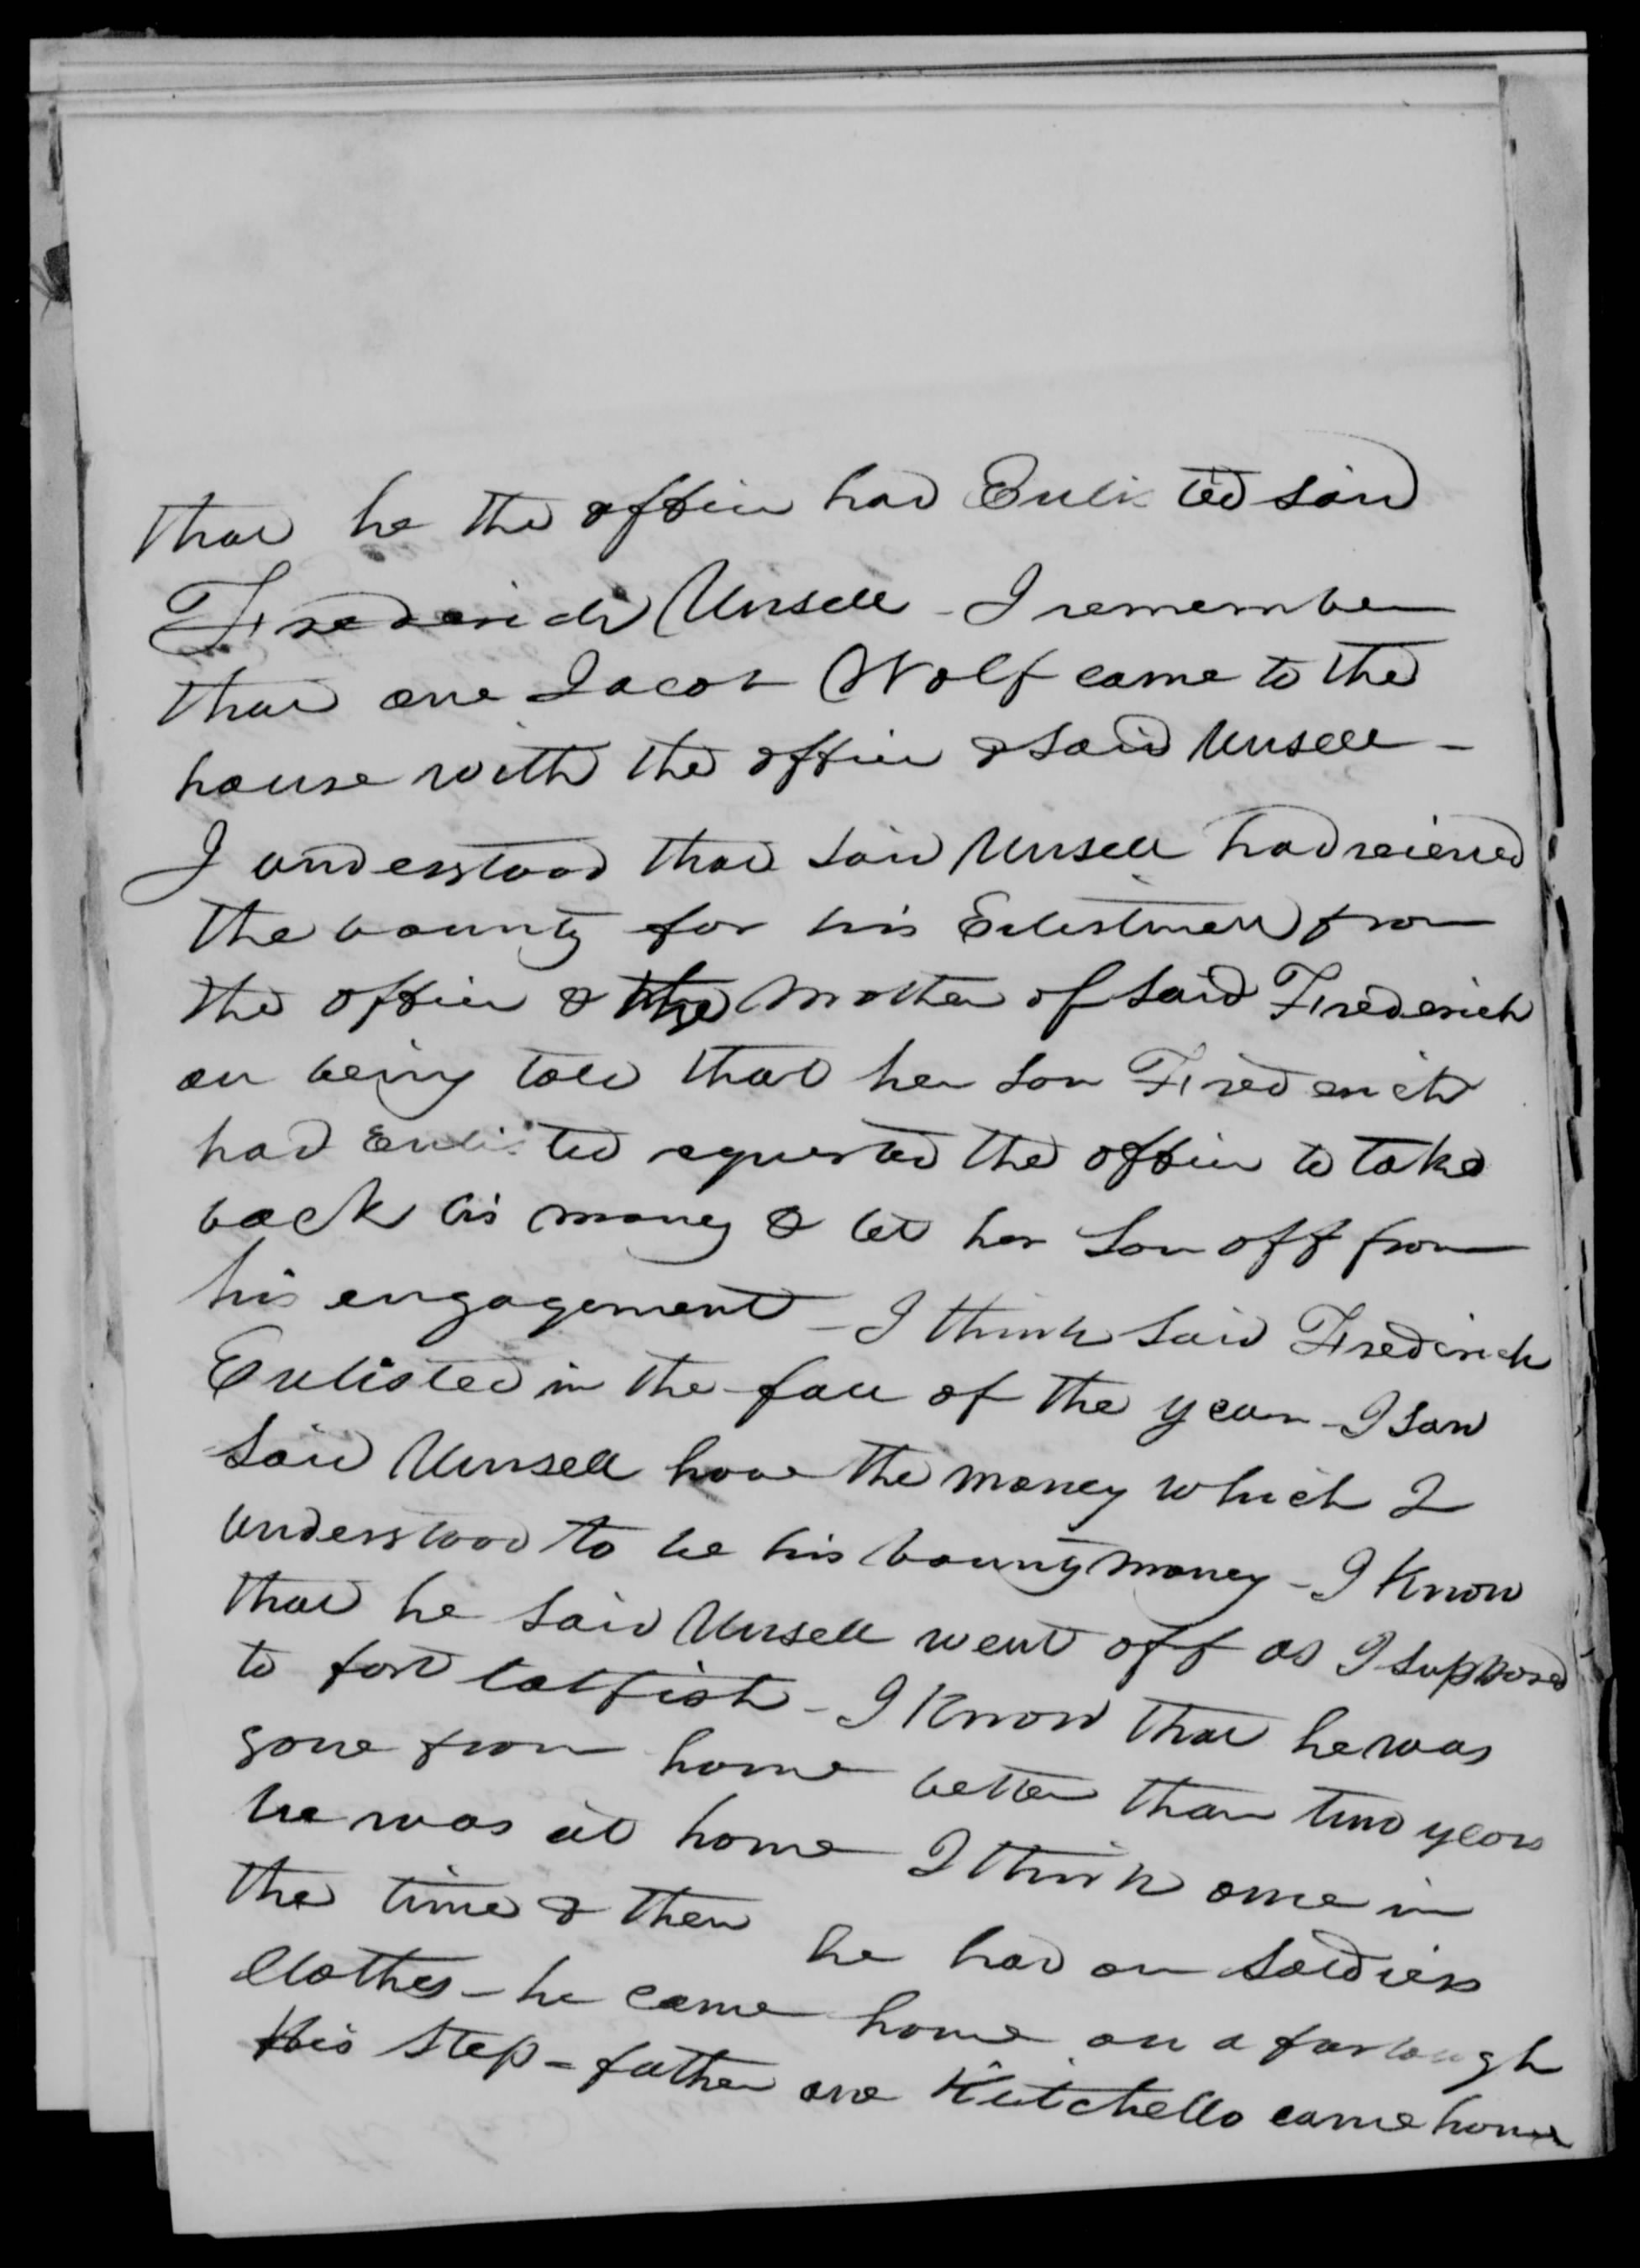 that he the officer had Enlisted said
Frederich Unsell - I remember
that one Jacob Wolf came to the
house with the officer & said Unsell -
I understood that said Unsell had reieved
the bounty for his Enlistment from
the officer & the mother of said Frederich
on being told that her son Frederich
had Enlisted requested the officer to take
back his money & let her son off from
his engagement - I think said Frederich
Enlisted in the fall of the year - I saw
said Unsell have the money which I
understood to be his bounty money - I know
that he said Unsell went off as I supposed
to fort Catfish - I know that he was
gone from home better than two years
he was at home I think once in
the time & then he had on soldiers
Clothes - he came home on a farlough
His step-father one Kutchello came home